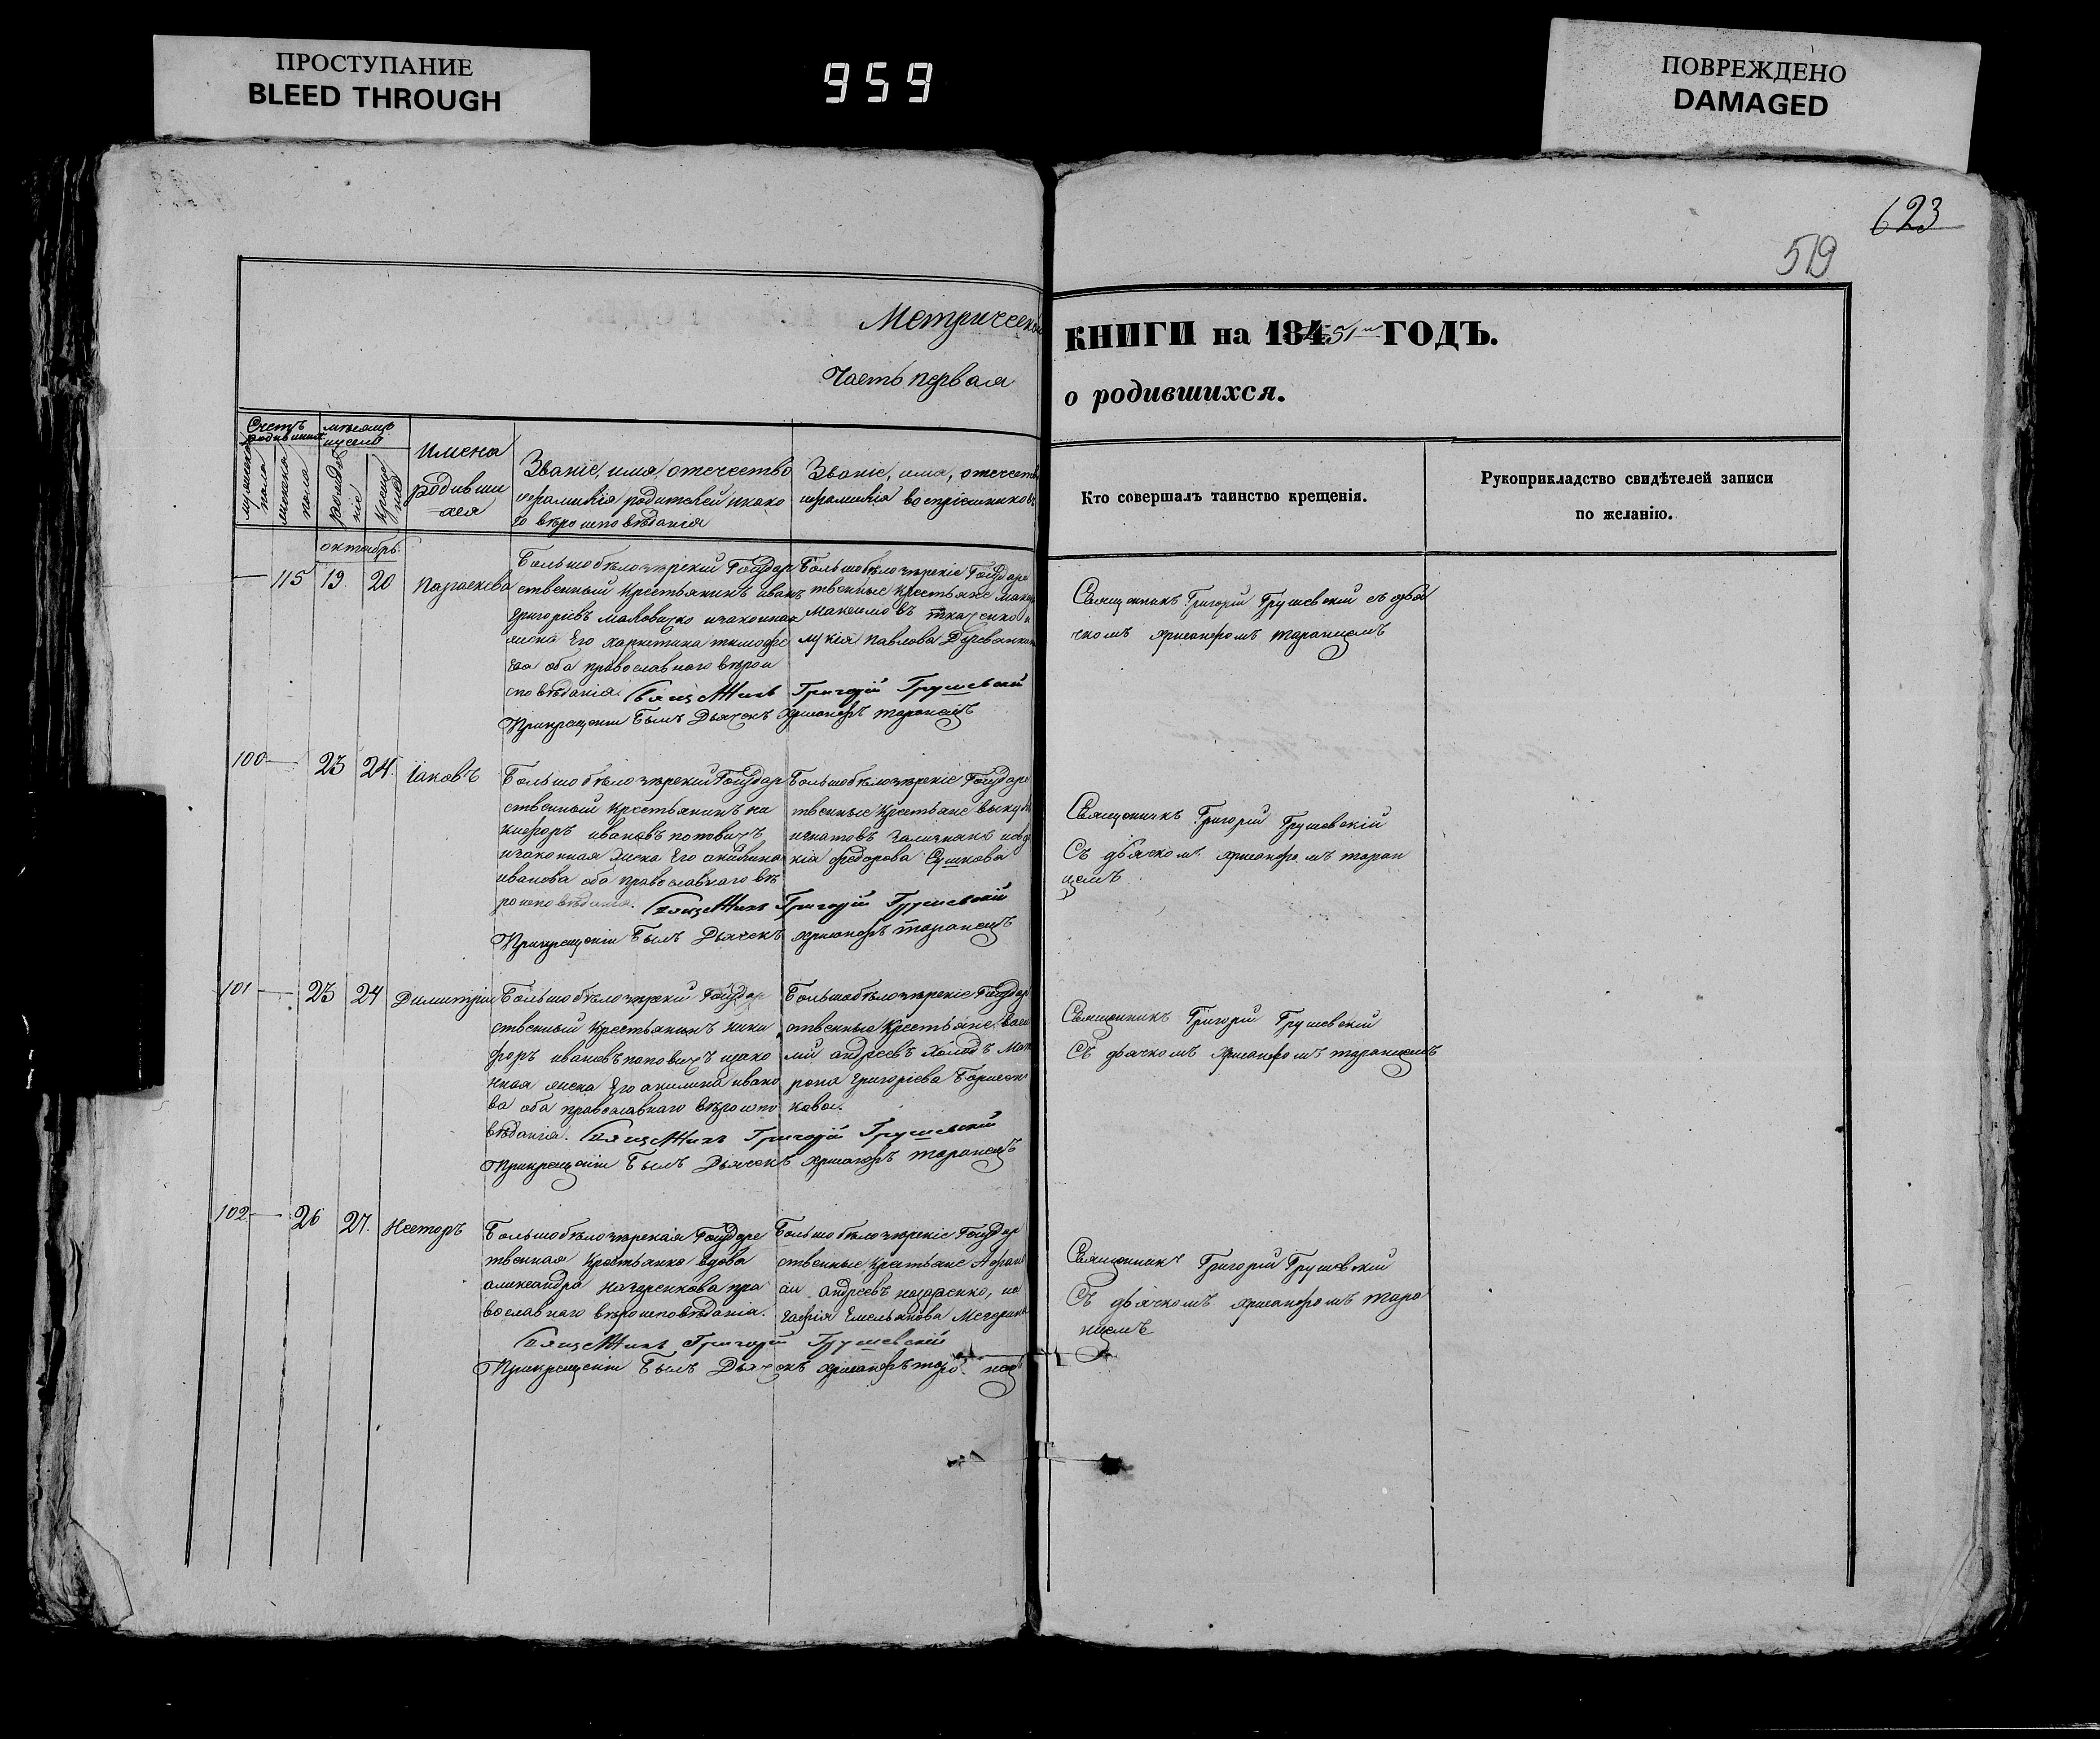 ПРОСТУПАНИЕ
BLEED THROUGH
959
ПОВРЕЖДЕНО
DAMAGED
623
519
Метрической
КНИГИ на 1851 ГОДЪ.
Часть первая
о родившихся.
Счетъ родившихся
мужеска пола
женска пола
Мѣсяцъ и число
рожденіе
крещеніе
Имена
родивши
=хся
Званіе, имя отечество
ифамилія родителей икако
го вѣроисповѣданія
Званіе, имя, отечеств
ифамилія воспріемниковъ
Кто совершалъ таинство крещенія.
Рукоприкладство свидѣтелей записи
по желанію.
октябрь
115 19. 20 Параскева
Большобѣлозерскій Государ
ственный Крестьянинъ иванъ
григорієвъ Маковитко изаконная
жена Его харитина тимофе
ева оба православнаго вѣрои
сповѣданія. Священникъ Григорій Грушевскій
Прикрещеніи Былъ Дьячекъ Хрисанфъ таранецъ
Большобѣлозерскіе Государс
твенные Крестьяне
Максимовъ ткаченко и
лукія павлова
Священникъ Григорій Грушевскій съ дья
чкомъ хрисанфомъ таранцемъ
100 23 24. Іаковъ
Большобѣлозерскій Государ
ственный Крестьянинъ ни
кифоръ ивановъ поповичъ
изаконная жена Его акилина
иванова оба православнаго вѣ
роисповѣданія. Священникъ Григорій Грушевскій
Прикрещеніи Былъ Дьячекъ хрисанфъ таранецъ
Большобѣлозерскіе Государс
твенные Крестьяне
игнатовъ
кія федорова Сушкова
Священникъ Григорій Грушевскій
Съ дьячкомъ хрисанфомъ таран
цемъ
101 23 24 Димитрій
Большобѣлозерскій Государ
ственный Крестьянинъ ники
форъ ивановъ поповичъ изако
нная жена Его акилина ивано
ва оба православнаго вѣроиспо
вѣданія. Священникъ Григорій Грушевскій
Прикрещеніи Былъ Дьячекъ хрисанфъ таранецъ
Большобѣлозерскіе Государ
ственные Крестьяне Васи
лій андреевъ Холодъ Мат
рона григоріева
кова.
Священникъ Григорій Грушевскій
Съ дьячкомъ хрисанфомъ таранцемъ
102 26 27. Несторъ
Большобѣлозерская Государс
твенная Крестьянка вдова
александра пра
вославнаго вѣроисповѣданія.
Священникъ Григорій Грушевскій
Прикрещеніи Былъ Дьячекъ хрисанфъ тара нецъ
Большобѣлозерскіе Государ
ственные Крестьяне Афана
сій андреевъ
гафія Емельянова
Священникъ Григорій Грушевскій
Съ дьячкомъ хрисанфомъ тара
нцемъ